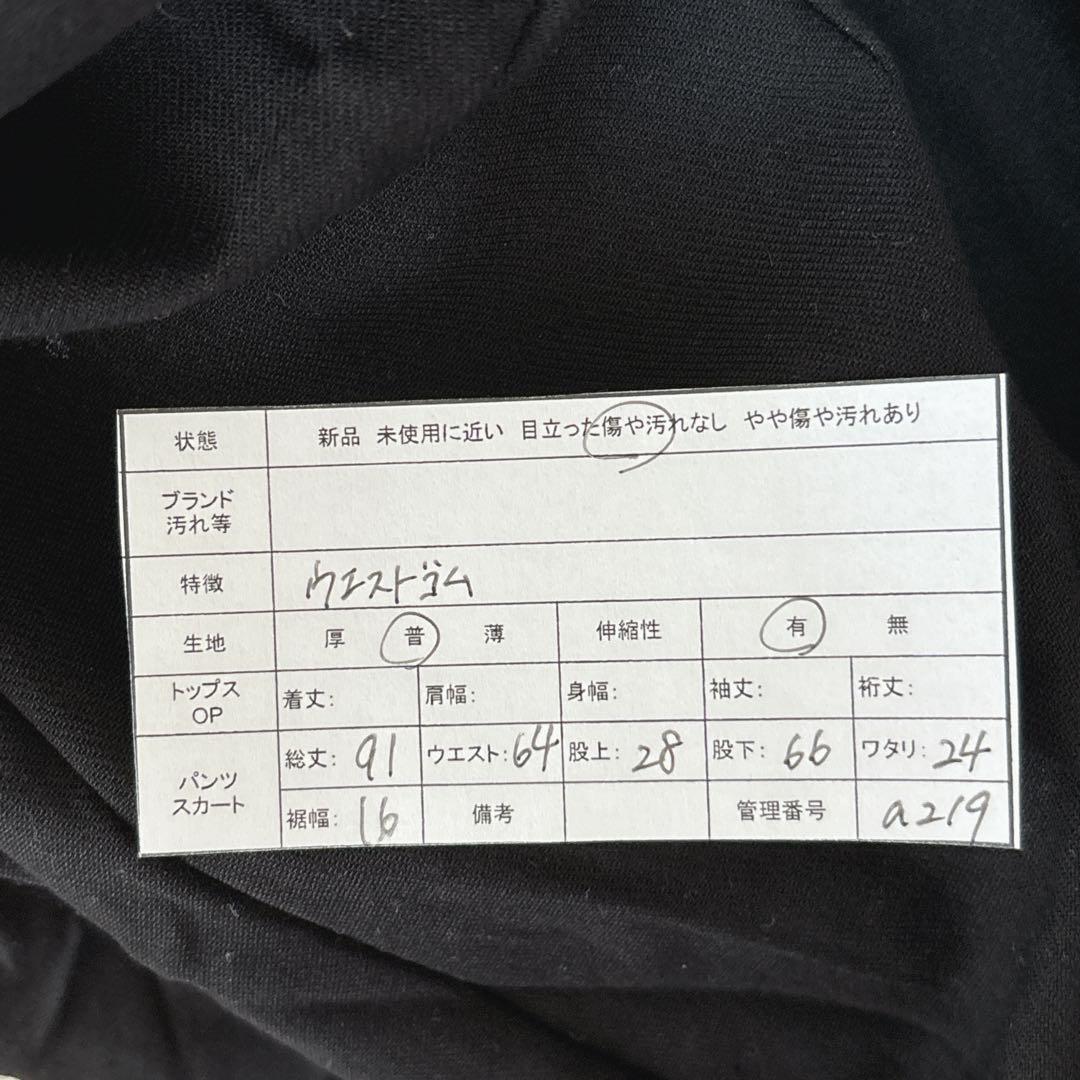 状態 新品 未使用に近い 目立った傷や汚れなし やや傷や汚れあり
ブランド
汚れ等
特徴 ウエストゴム
生地 厚 普 薄 伸縮性 有 無
トップス
OP
着丈: 肩幅: 身幅: 袖丈: 裄丈:
パンツ
スカート
総丈: 91 ウエスト: 64 股上: 28 股下: 66 ワタリ: 24
裾幅: 16 備考 管理番号 a219